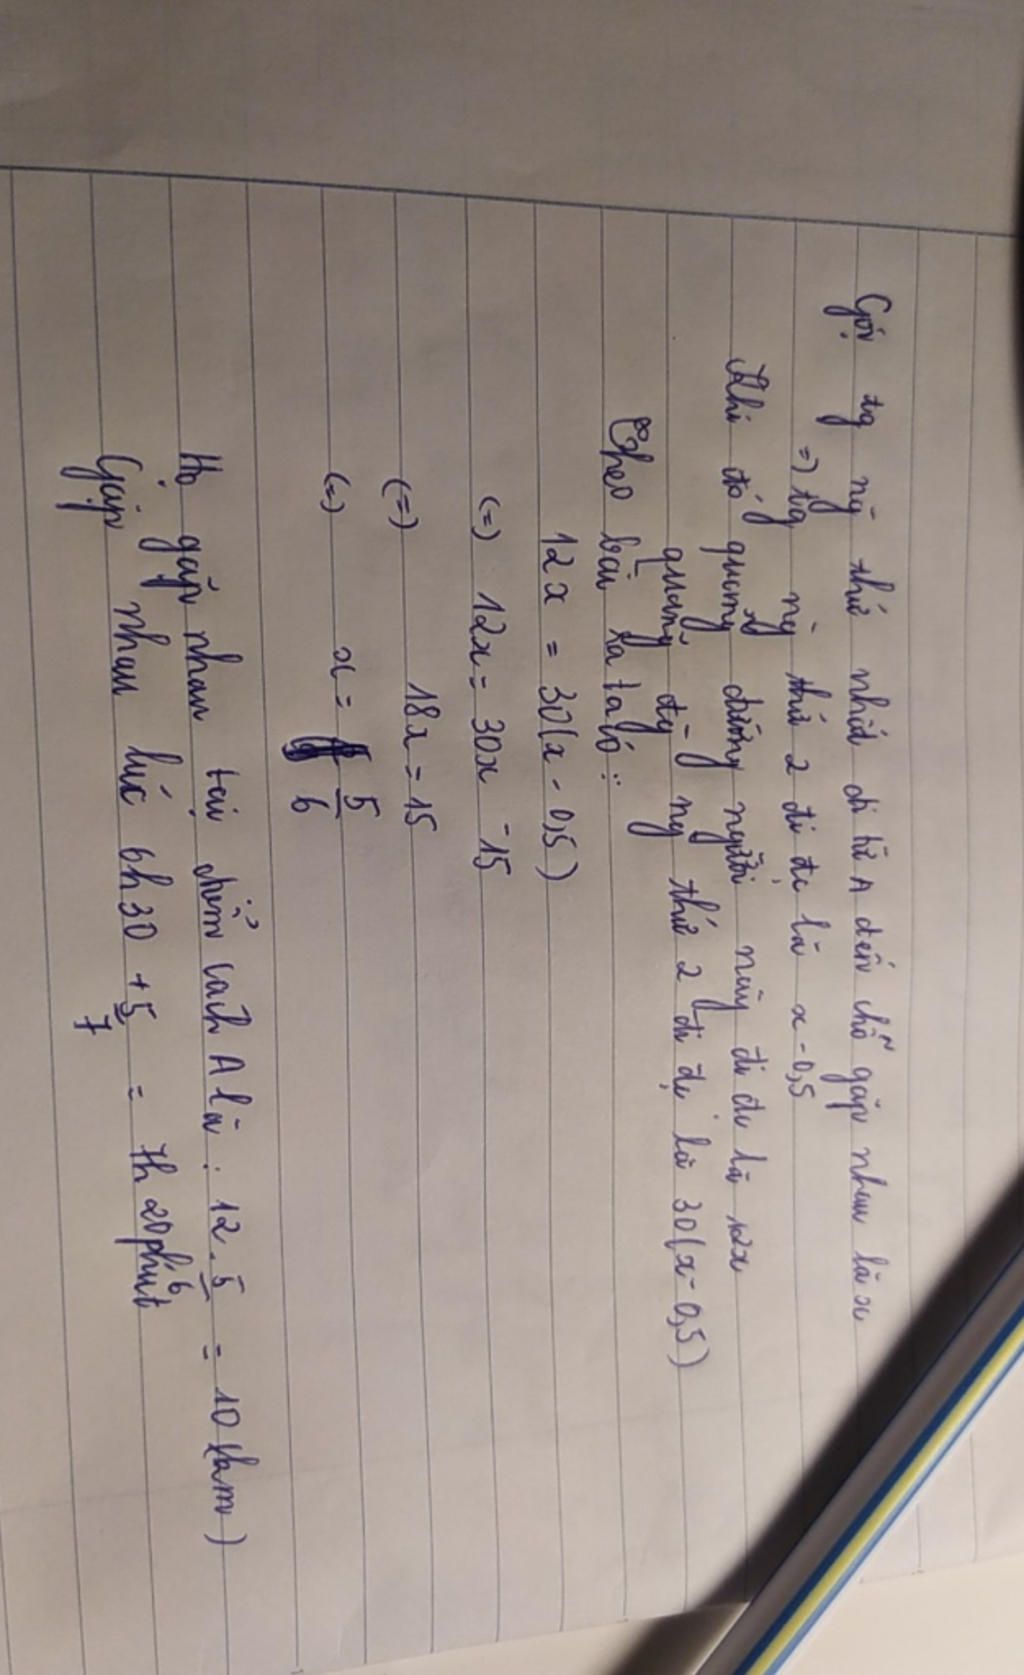 Gọi tg ng̀ thứ nhất đi từ A đến chỗ gặp nhau là x
=) tg ng̀ thứ 2 đi đc là x - 0,5
Khi đó quãng đường người này đi đc là 12x
quãng đg̀ ng̀ thứ 2 đi đc là 30(x - 0,5)
Theo bài ra ta có:
12x = 30(x - 0,5)
(=) 12x = 30x - 15
(=) 18x = 15
(=) x = 5/6
Họ gặp nhau tại điểm cách A là : 12 . 5/6 = 10 (km)
Gặp nhau lúc 6h30 + 5/7 = 7h 20 phút